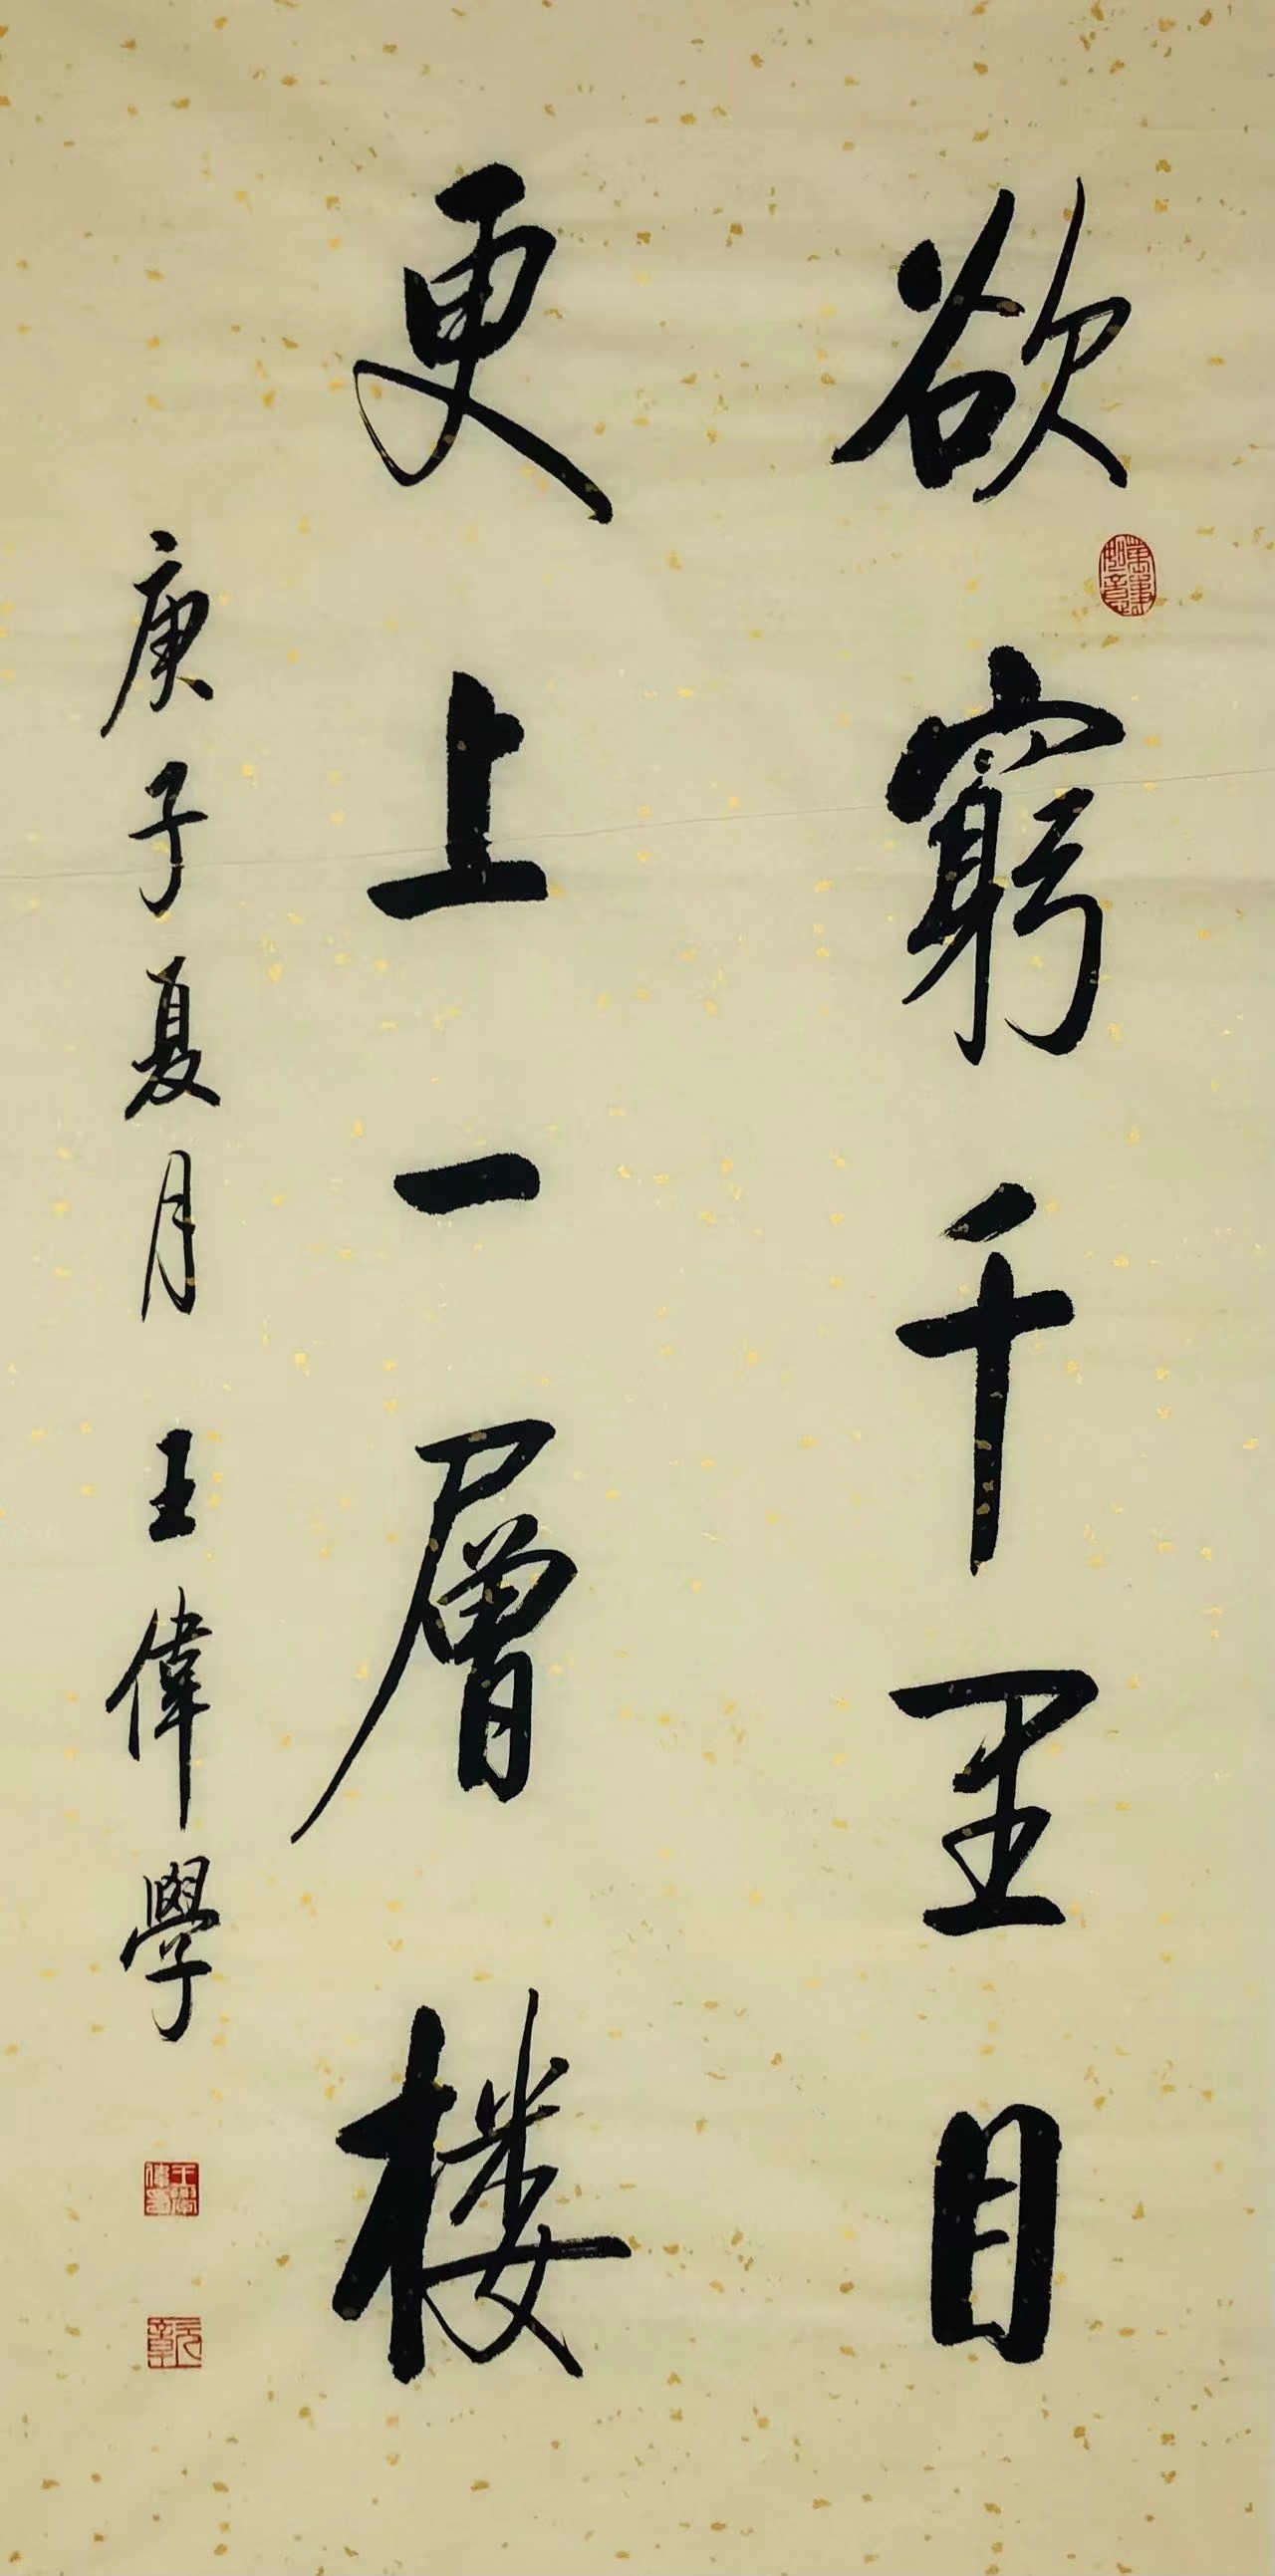 欲窮千里目
更上一層楼
庚子夏月 王偉學